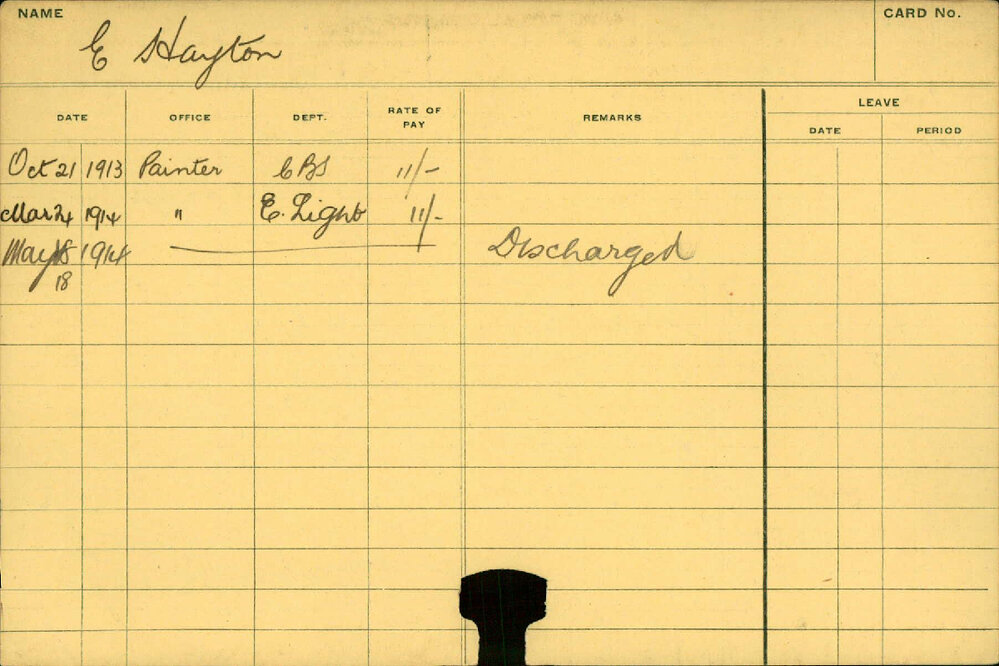 NAME CARD No.
E Hayton
DATE OFFICE DEPT. RATE OF PAY REMARKS LEAVE
DATE PERIOD
Oct 21 1913 Painter CBS 11/-
Mar 24 1914 " E. Light 11/-
May 18 1914 Discharged
18